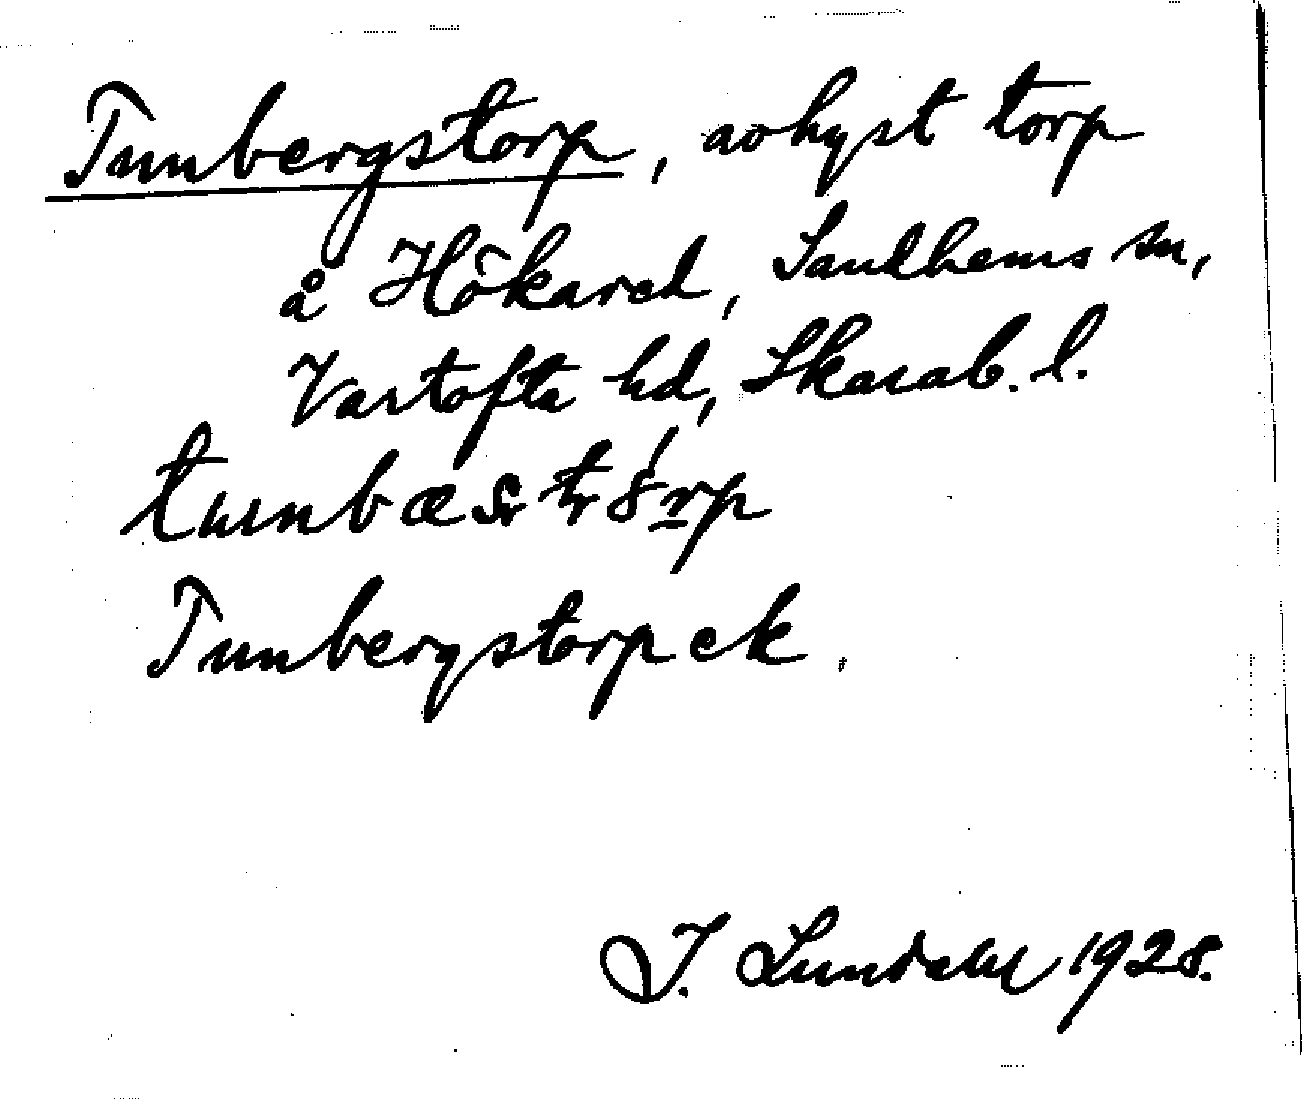 Tunbergstorp, avhyst torp
å Hökared, Sandhems sn,
Vartofta hd, Skarab. l.
Tunbergstorp ek.
I. Lundahl 1928.